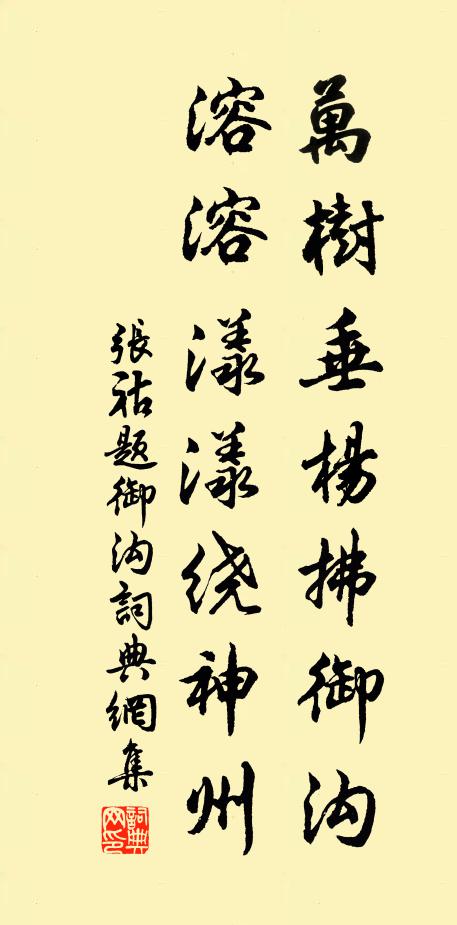 萬樹垂楊拂御沟
溶溶漾漾绕神州
張祜題御沟詞典網集
詞典网印